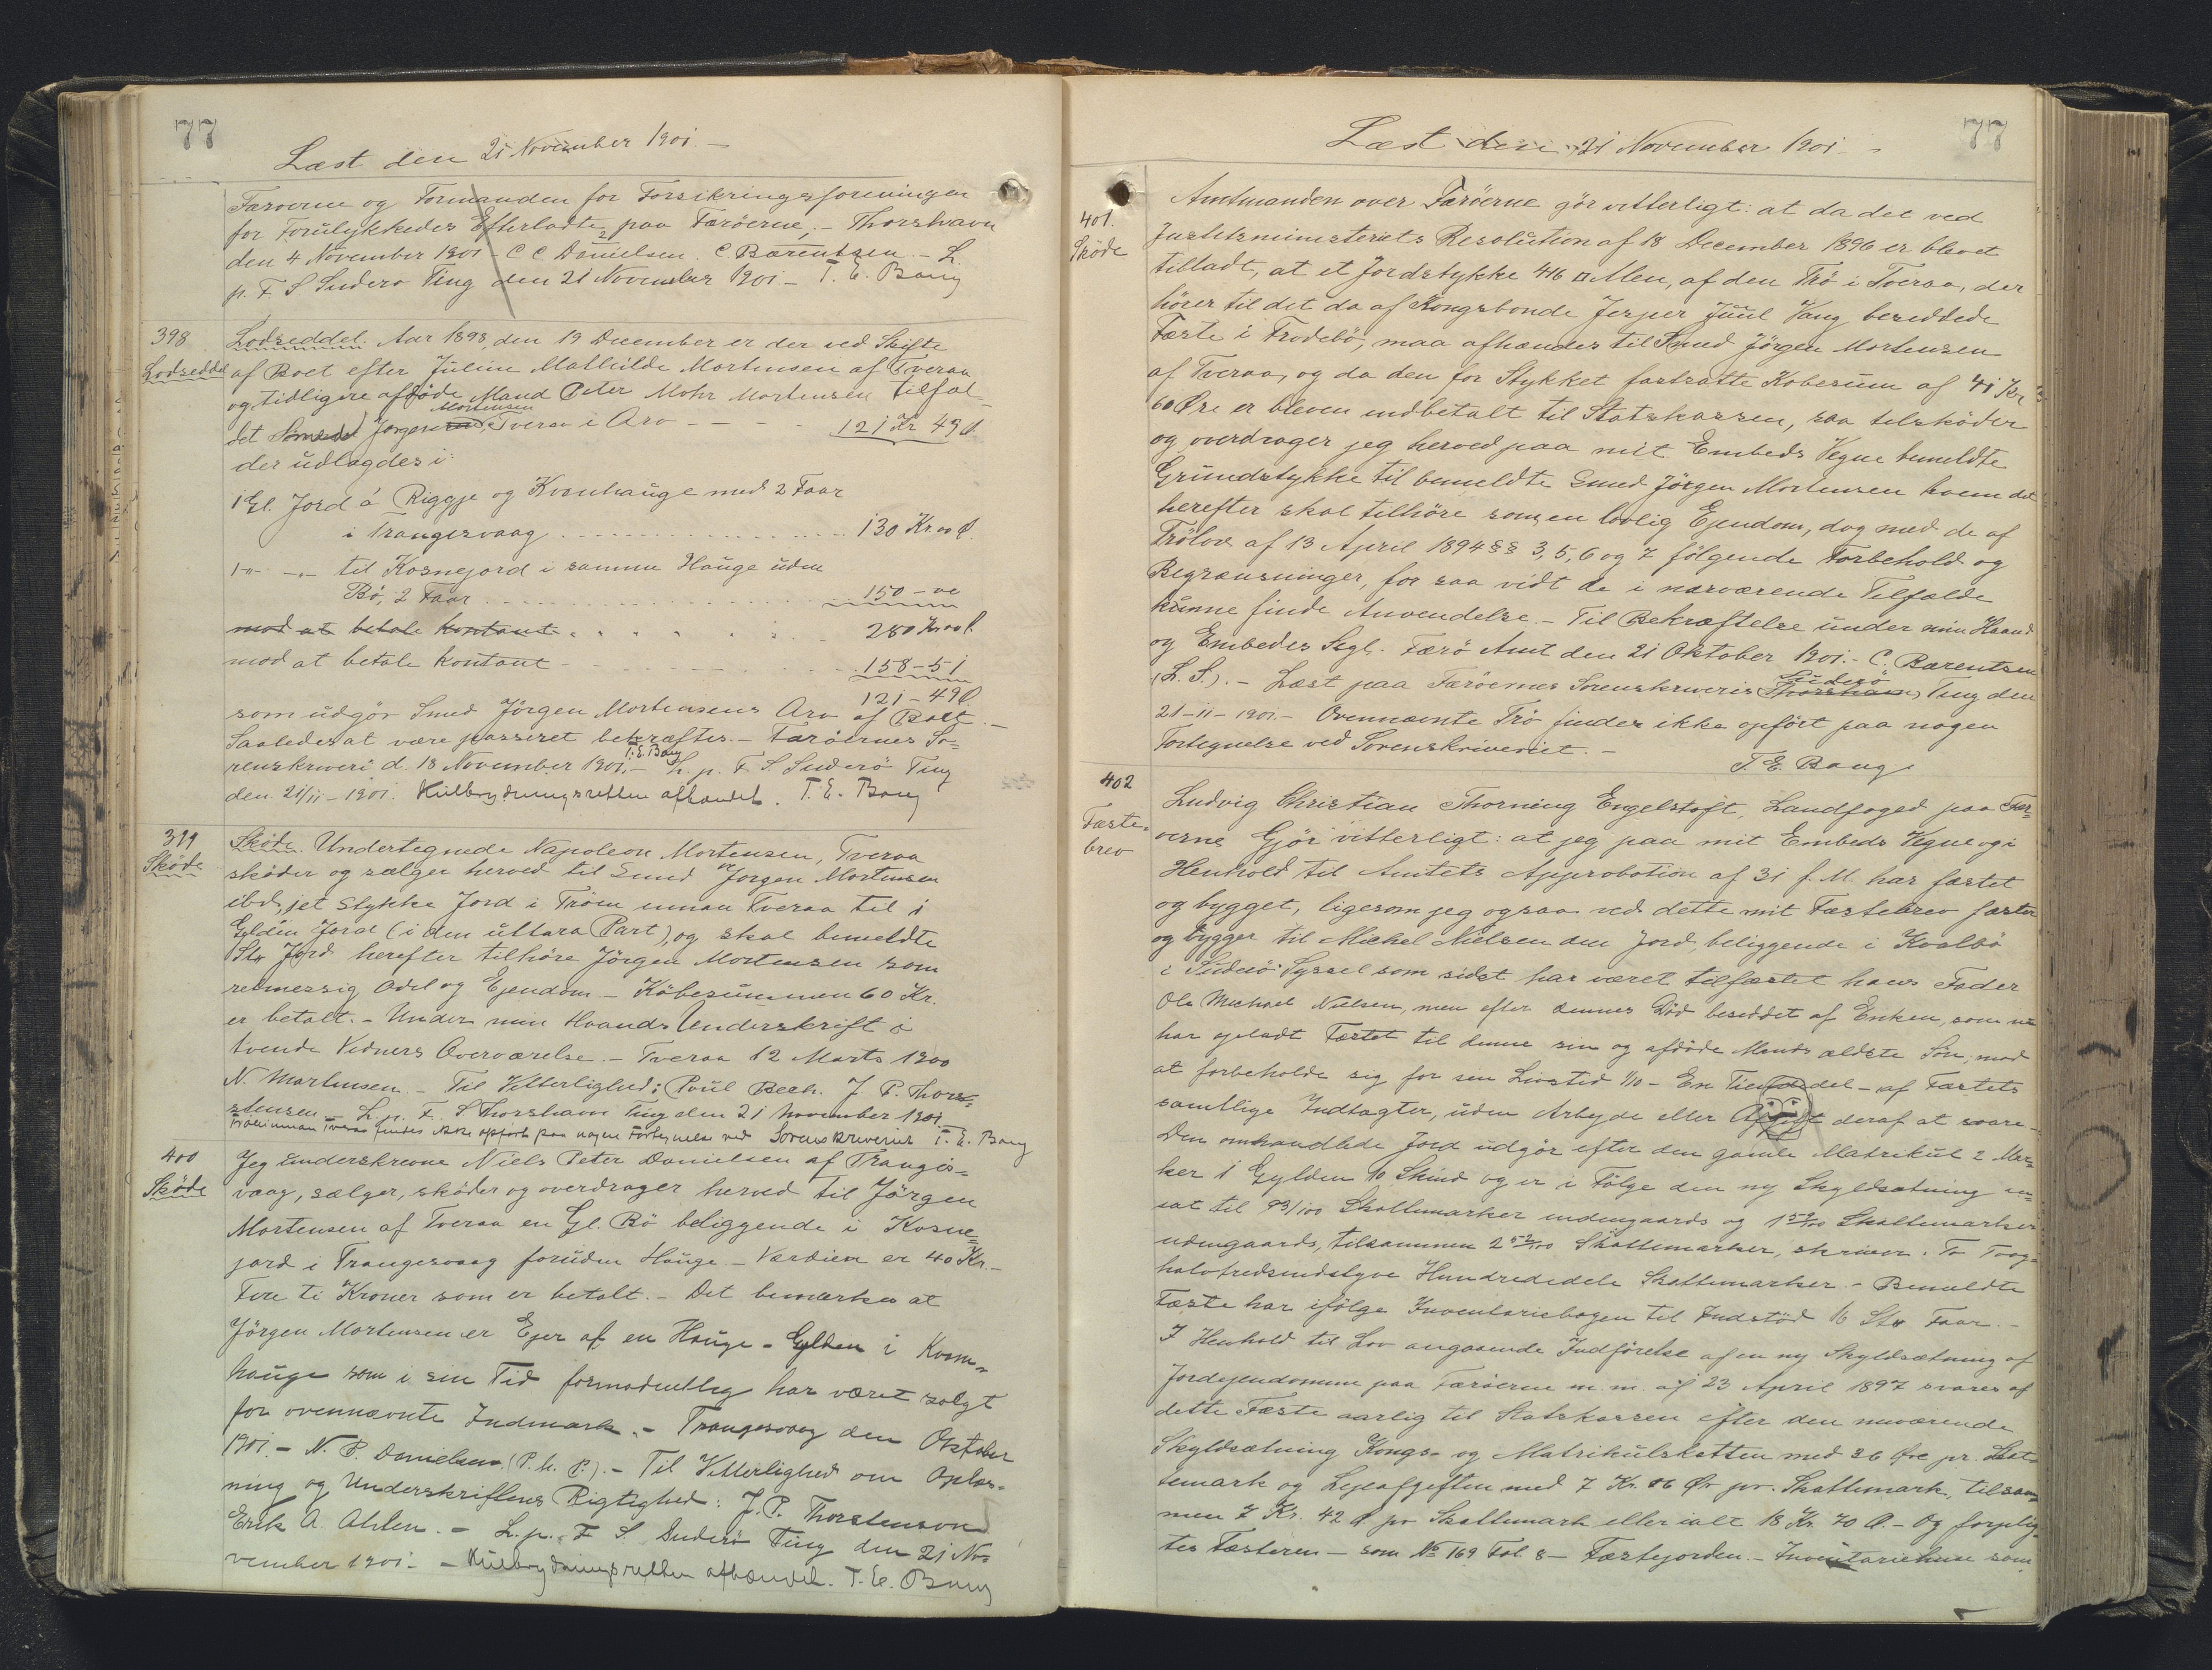 77
Læst den 21 November 1901. –
Færoerne og Formanden for Forsikringsforeningen
for Forulykkedes Efterladte paa Færöerne, – Thorshavn
den 4 November 1901 – C C Danielsen. C Bærentsen. – L.
p. F S Suderø Ting den 21 November 1901 – T. E. Bang
398
Lodseddel
Lodseddel. Aar 1898, den 19 December er der ved Skifte
af Boet efter Juline Mathilde Mortensen af Tveraa
og tidligere afdöde Mand Peter Mohr Mortensen tilfal-
det Smed Jörgen Mortensen, Tveraa i Arv – – – 121 Kr 49 Ø.
der udlagdes i:
1 Gl. Jord á Riggje og Kvanhauge med 2 Faar
i Trangesvaag . . . . 130 Kr 00 Ø.
1 –"– –"– til Kosnejord i samme Hauge uden
Bö, 2 Faar . . . . 150 – 00
mod at betale kontant . . . . 280 Kr 00 Ø.
mod at betale kontant – – – 158 – 51
121 – 49 Ø.
som udgör Smed Jörgen Mortensens Arv af Boet. –
Saaledes at være passeret bekræftes. – Færöernes So-
renskriveri d. 18 November 1901. – T. E. Bang L. p. F. S. Suderö Ting
den 21/11 – 1901. Kulbrydningsretten afhændet. T. E. Bang
399
Sköde
Sköte. Undertegnede Napoleon Mortensen, Tveraa
sköder og sælger herved til Smed Jörgen Mortensen
ibd, et Stykke Jord i Tröen innan Tveraa til 1
Gylden Jord (i den uttara Part), og skal bemeldte
St. Jord herefter tilhöre Jörgen Mortensen som
retmessig Odel og Ejendom – Köbesummen 60 Kr.
er betalt. – Under min Haands Underskrift i
tvende Vidners Overværelse. – Tveraa 12 Marts 1900
N. Mortensen. – Til Vitterlighed: Poul Bech. J. P. Thor-
stensen – L. p. F. S Thorshavn Ting den 21 November 1901.
Tröen innan Tveraa findes ikke opfört paa nogen Fortegnelse ved Sorenskriveriet T. E. Bang
400
Sköde
Jeg underskrevne Niels Peter Danielsen af Trangis-
vaag, sælger, sköder og overdrager herved til Jörgen
Mortensen af Tveraa en Gl. Bö beliggende i Kosne-
jord i Trangesvaag foruden Hauge. – Værdien er 40 Kr. –
Fire ti Kroner som er betalt. – Det bemærkes at
Jörgen Mortensen er Ejer af en Hauge-Gylden i Kvan-
hauge som i sin Tid formodentlig har været solgt
for ovennævnte Indmark. – Trangesvaag den Oktober
1901. – N. P. Danielsen. (P. h. P.). – Til Vitterlighed om Oplæs-
ning og Underskriftens Rigtighed: J. P. Thorstenson
Erik A. Ahlen. – L. p. F. S. Suderö Ting den 21 No-
vember 1901. – Kulbrydningsretten afhændet. T. E. Bang
77
Læst den 21 November 1901 –
401.
Sköde
Amtmanden over Færöerne gör vitterligt: at da det ved
Justitsministeriets Resolution af 18 December 1896 er blevet
tilladt, at et Jordstykke 416 □ Alen, af den Trö i Tveraa, der
hörer til det da af Kongsbonde Jesper Juul Vang besiddede
Fæste i Frodebö, maa afhændes til Smed Jörgen Mortensen
af Tveraa, og da den for Stykket fastsatte Kobesum af 41 Kr
60 Öre er bleven indbetalt til Statskassen, saa tilsköder
og overdrager jeg herved paa mit Embeds Vegne bemeldte
Grundstykke til bemeldte Smed Jörgen Mortensen hvem det
herefter skal tilhöre som en lovlig Ejendom, dog med de af
Trölov af 13 April 1894 §§ 3, 5, 6 og 7 fölgende Forbehold og
Begrænsninger, for saa vidt de i nærværende Tilfælde
kunne finde Anvendelse. – Til Bekræftelse under min Haand
og Embedes Segl. Færö Amt den 21 Oktober 1901. – C. Bærentsen
(L. S.). – Læst paa Færöernes Sorenskriveris Thorshavns Suderö Ting den
21 – 11 – 1901. – Ovennævnte Trö findes ikke opfört paa nogen
Fortegnelse ved Sorenskriveriet. –
T. E. Bang
402
Fæste-
brev
Ludvig Christian Thorning Engelstoft, Landfoged paa Fær-
oerne Gjör vitterligt: at jeg paa mit Embeds Vegne og i
Henhold til Amtets Approbation af 31 f. M. har fæstet
og bygget, ligesom jeg ogsaa ved dette mit Fæstebrev fæster
og bygger til Michel Nielsen den Jord, beliggende i Kvalbö
i Suderö Syssel som sidst har været tilfæstet hans Fader
Ole Michael Nielsen, men efter dennes Död besiddet af Enken, som nu
har opladt Fæstet til denne sin og afdöde Mands ældste Sön, mod
at forbeholde sig for sin Livstid 1/10 – En Tiendedel – af Fæstets
samtlige Indtægter, uden Arbejde eller Afgift deraf at svare –
Den omhandlede Jord udgör efter den gamle Matrikul 2 Mar-
ker 1 Gylden 10 Skind og er i Fölge den ny Skyldsætning an-
sat til 93/100 Skattemarker indengaards og 1 59/100 Skattemarker
udengaards, tilsammen 2 52/100 Skattemarker, skriver: To Toog-
halvtredsindstyve Hundrededele Skattemarker. – Bemeldte
Fæste har ifölge Inventariebogen til Indstöd 16 St. Faar. –
I Henhold til Lov angaaende Indförelse af en ny Skyldsætning af
Jordejendomme paa Færöerne m. m. af 23 April 1897 svares af
dette Fæste aarlig til Statskassen efter den nuværende
Skyldsætning Kongs- og Matrikulskatten med 36 Öre pr. Skat-
temark og Lejeafgiften med 7 Kr. 06 Ör pr. Skattemark, tilsam-
men 7 Kr. 42 Ø pr Skattemark eller ialt 18 Kr. 70 Ø. – Og forplig-
tes Fæsteren – som No 169 Fol 8 – Fæstejorden. – Inventariehuse som